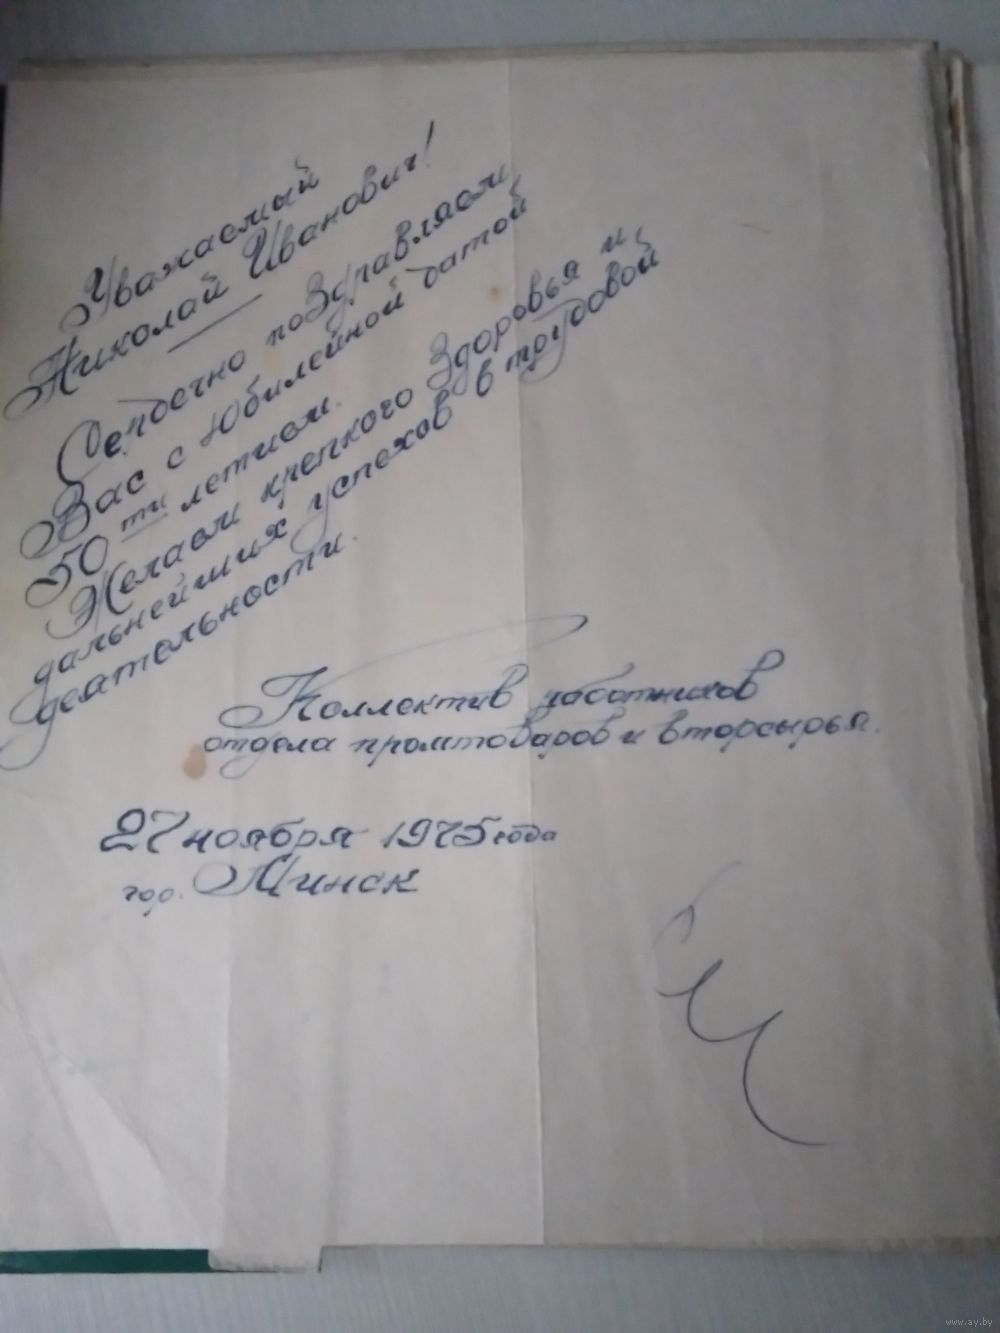 Уважаемый
Николай Иванович!
Сердечно поздравляем
Вас с юбилейной датой
50 ти летием.
Желаем крепкого здоровья и
дальнейших успехов в трудовой
деятельности.
Коллектив работников
отдела промтоваров и вторсырья.
27 ноября 1975 года
гор. Минск
www.ay.by